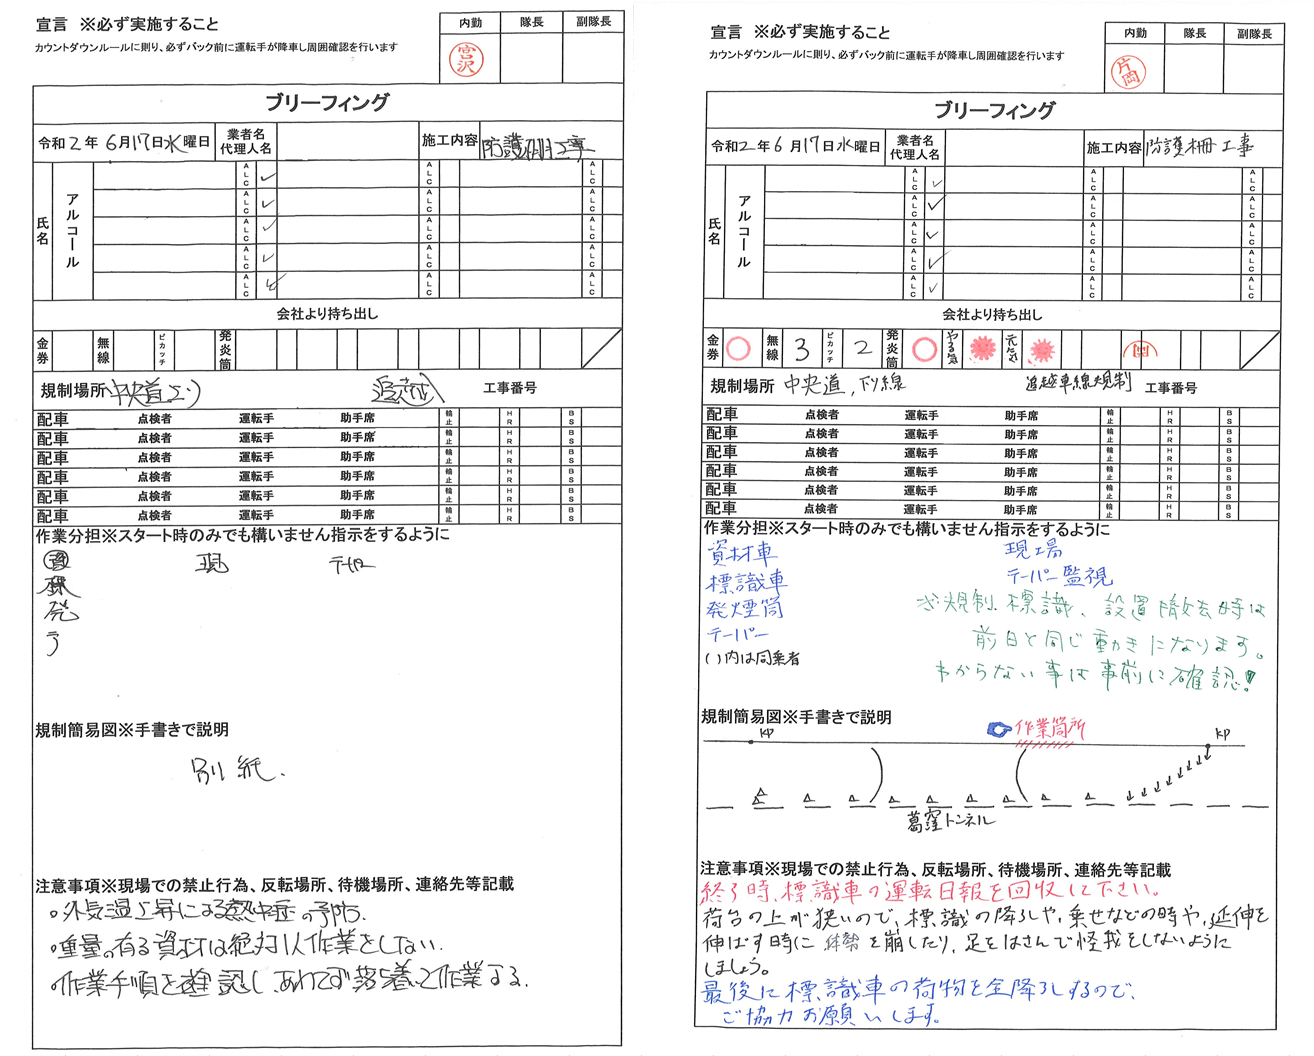 宣言 ※必ず実施すること
カウントダウンルールに則り、必ずバック前に運転手が降車し周囲確認を行います
内勤 隊長 副隊長
宮沢
ブリーフィング
令和2年 6月17日水曜日 業者名 代理人名 施工内容 防護柵工事
氏名 アルコール
ALC ALC ALC
ALC ALC ALC
ALC ALC ALC
ALC ALC ALC
ALC ALC ALC
会社より持ち出し
金券 無線 ピカッチ 発炎筒
規制場所 中央道 工事番号
配車 点検者 運転手 助手席 輪止 HR BS
配車 点検者 運転手 助手席 輪止 HR BS
配車 点検者 運転手 助手席 輪止 HR BS
配車 点検者 運転手 助手席 輪止 HR BS
配車 点検者 運転手 助手席 輪止 HR BS
配車 点検者 運転手 助手席 輪止 HR BS
作業分担※スタート時のみでも構いません指示をするように
資 現 テーパー
標
発
テ
規制簡易図※手書きで説明
別紙.
注意事項※現場での禁止行為、反転場所、待機場所、連絡先等記載
○外気温上昇による熱中症の予防.
○重量の有る資材は絶対1人作業をしない.
○作業手順を確認し、あわてず落ち着いて作業する.
宣言 ※必ず実施すること
カウントダウンルールに則り、必ずバック前に運転手が降車し周囲確認を行います
内勤 隊長 副隊長
片岡
ブリーフィング
令和2年 6月17日水曜日 業者名 代理人名 施工内容 防護柵工事
氏名 アルコール
ALC ALC ALC
ALC ALC ALC
ALC ALC ALC
ALC ALC ALC
ALC ALC ALC
会社より持ち出し
金券 ○ 無線 3 ピカッチ 2 発炎筒 ○ やる気 元気
規制場所 中央道,下り線 追越車線規制 工事番号
配車 点検者 運転手 助手席 輪止 HR BS
配車 点検者 運転手 助手席 輪止 HR BS
配車 点検者 運転手 助手席 輪止 HR BS
配車 点検者 運転手 助手席 輪止 HR BS
配車 点検者 運転手 助手席 輪止 HR BS
配車 点検者 運転手 助手席 輪止 HR BS
作業分担※スタート時のみでも構いません指示をするように
資材車 現場
標識車 テーパー監視
発煙筒
テーパー
( )内は同乗者
※規制.標識、設置撤去時は
前日と同じ動きになります。
わからない事は事前に確認!
規制簡易図※手書きで説明
KP 作業箇所 KP
葛窪トンネル
注意事項※現場での禁止行為、反転場所、待機場所、連絡先等記載
終了時、標識車の運転日報を回収して下さい。
荷台の上が狭いので、標識の降ろしや,乗せなどの時や,延伸を
伸ばす時に 体勢を崩したり,足をはさんで怪我をしないように
しましょう。
最後に標識車の荷物を全降ろしするので、
ご協力お願いします。